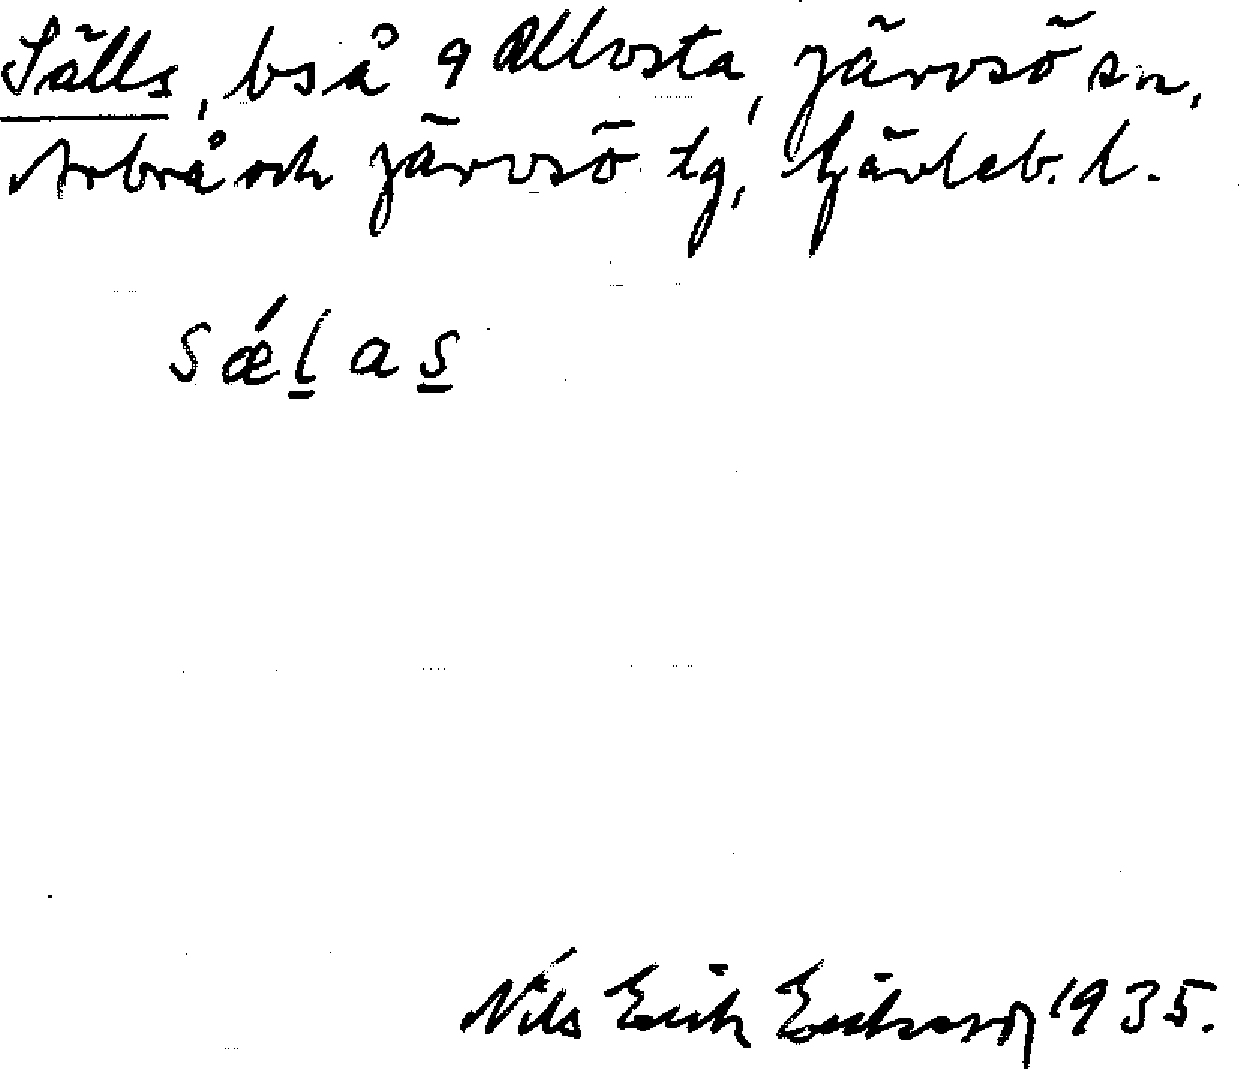 Sälls, bs å 9 Allvsta, Järvsö sn,
Arbrå och Järvsö tg, Gävleb. l.
Sǽlas
Nils Erik Eriksson 1935.